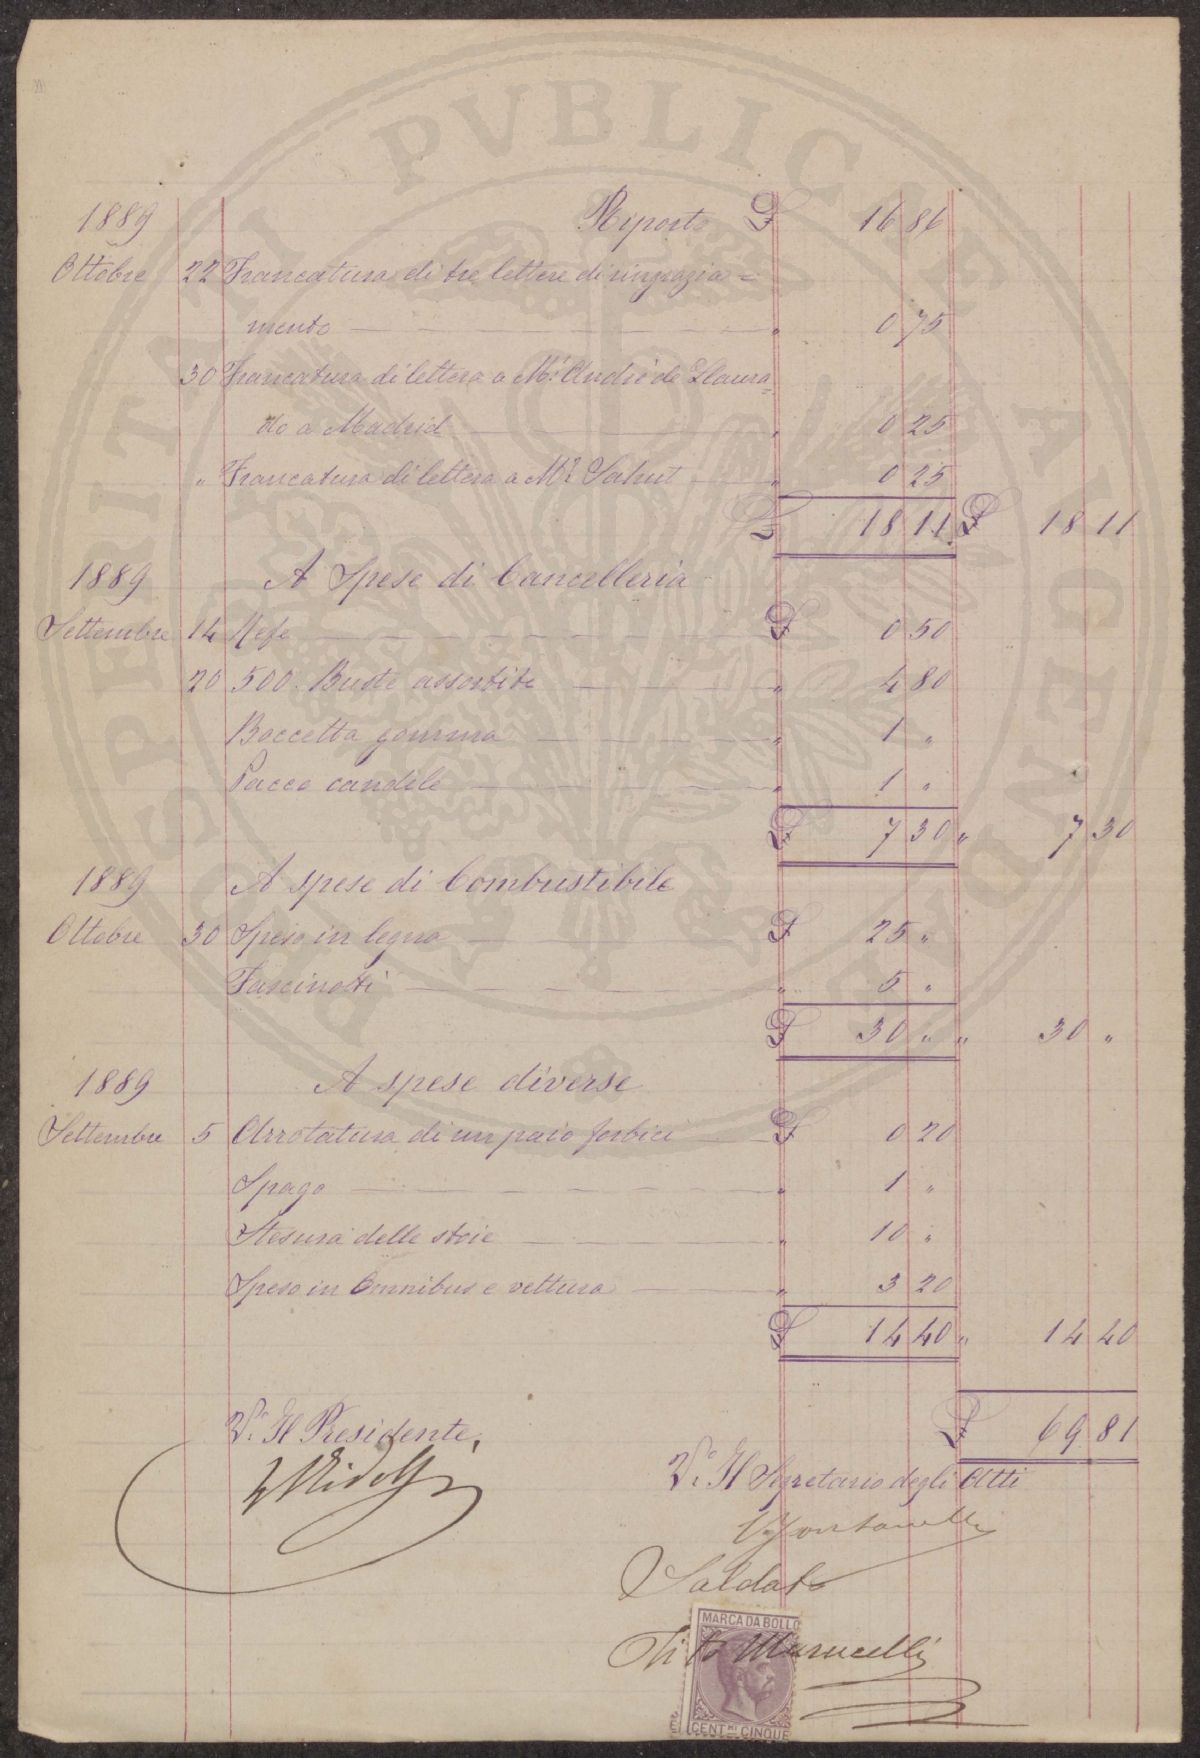 PROSPERITATI PVBLICAE AVGENDAE
1889 Riporto £ 16 86
Ottobre 22 Francatura di tre lettere di ringrazia=
mento " 0 75
30 Francatura di lettera a Mr. André de Llaura=
do a Madrid " 0 25
" Francatura di lettera a Mr. Sahut " 0 25
£ 18 11 £ 18 11
1889 A Spese di Cancelleria
Settembre 14 Refe £ 0 50
20 500. Buste assortite " 4 80
Boccetta gomma " 1 "
Pacco candele " 1 "
£ 7 30 " 7 30
1889 A spese di Combustibile
Ottobre 30 Speso in legna £ 25 "
Fascinotti " 5 "
£ 30 " " 30 "
1889 A spese diverse
Settembre 5 Arrotatura di un paio forbici £ 0 20
Spago " 1 "
Stesura delle stoie " 10 "
Speso in Omnibus e vettura " 3 20
£ 14 40 " 14 40
£ 69 81
Vo. Il Presidente,
L Ridolfi
Vo. Il Segretario degli Atti
Fontanelli
Saldato
Tito Marucelli
MARCA DA BOLLO
CENT.MI CINQUE